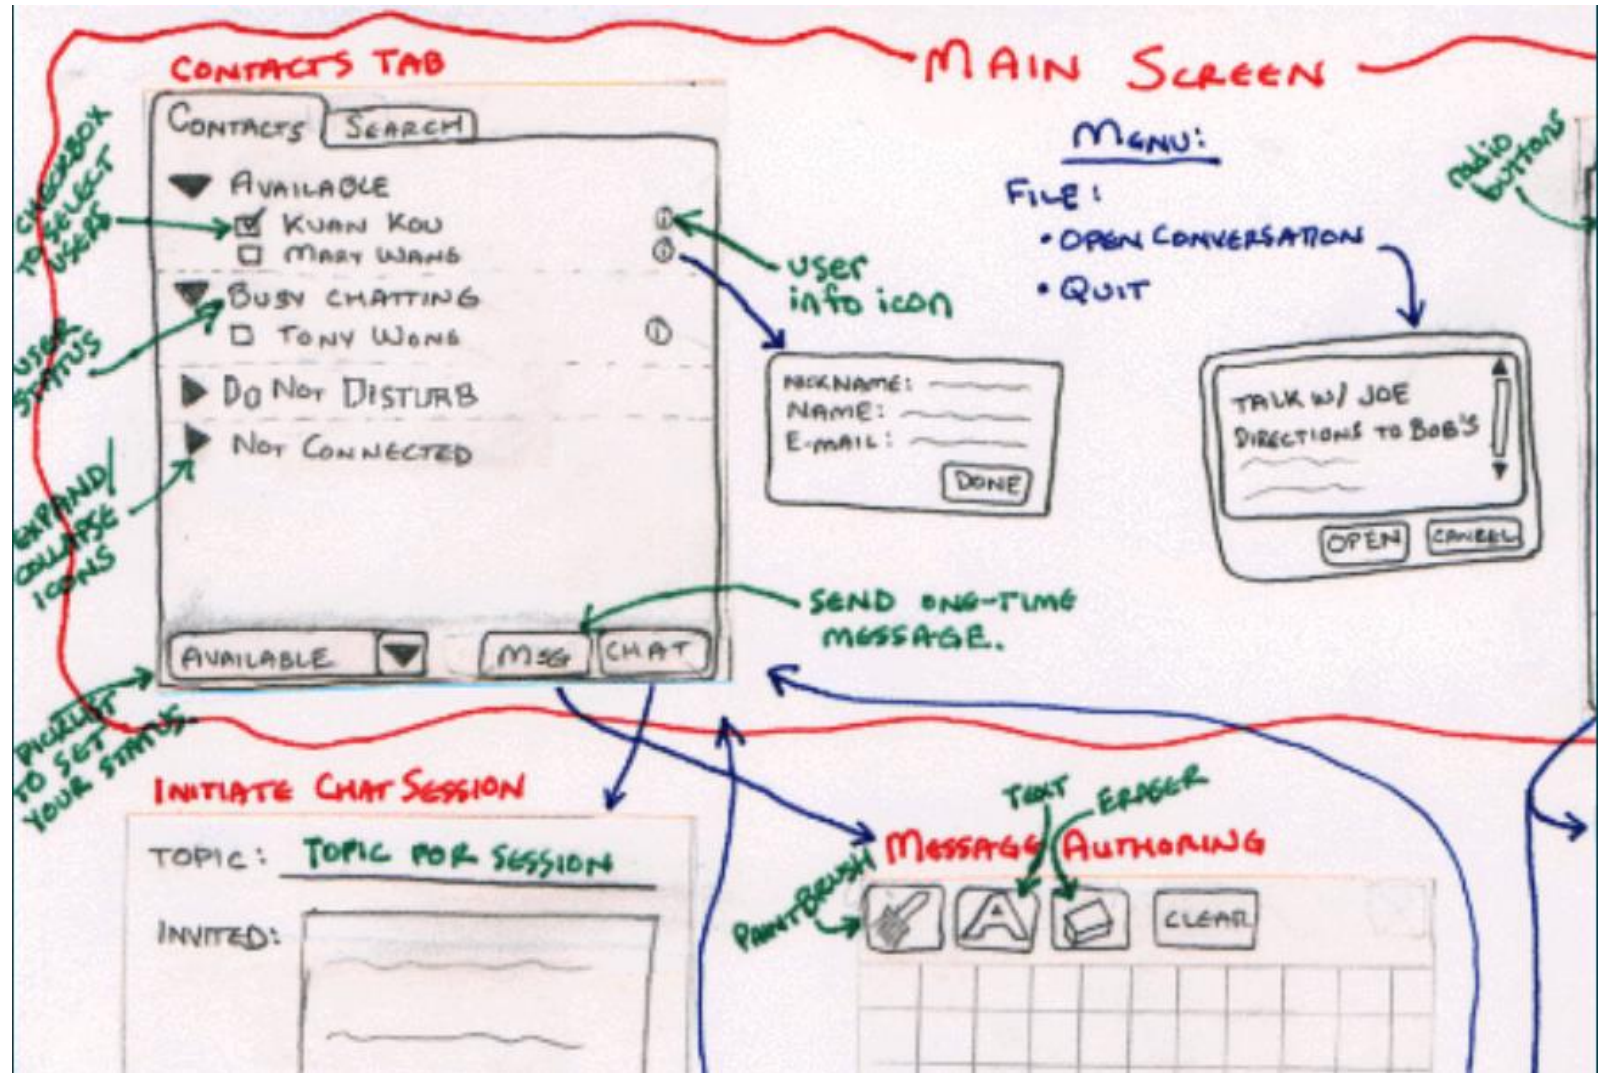 MAIN SCREEN
CONTACTS TAB
CONTACTS
SEARCH
AVAILABLE
KUAN KOU
MARY WANG
BUSY CHATTING
TONY WONG
DO NOT DISTURB
NOT CONNECTED
AVAILABLE
MSG
CHAT
CHECKBOX
TO SELECT
USERS
USER
STATUS
EXPAND/
COLLAPSE
ICONS
PICKLIST
TO SET
YOUR STATUS.
user
info icon
NICKNAME:
NAME:
E-MAIL:
DONE
SEND ONE-TIME
MESSAGE.
MENU:
FILE:
• OPEN CONVERSATION
• QUIT
TALK W/ JOE
DIRECTIONS TO BOB'S
OPEN
CANCEL
radio
buttons
INITIATE CHAT SESSION
TOPIC: TOPIC FOR SESSION
INVITED:
TEXT
ERASER
MESSAGE AUTHORING
PAINTBRUSH
A
CLEAR